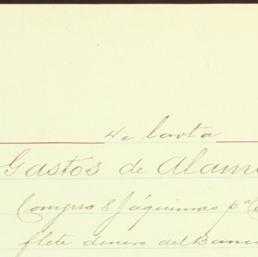 Gastos de Alam
Compra 8 Jáquimas pa C
flete dinero del Banc